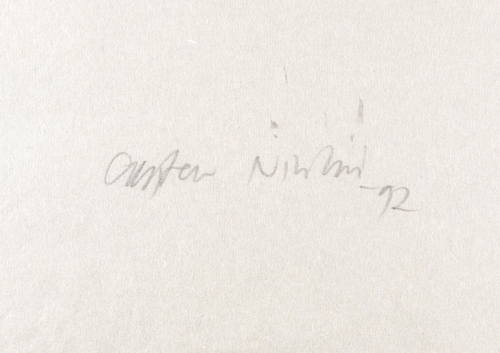 Carsten Nicolai -92